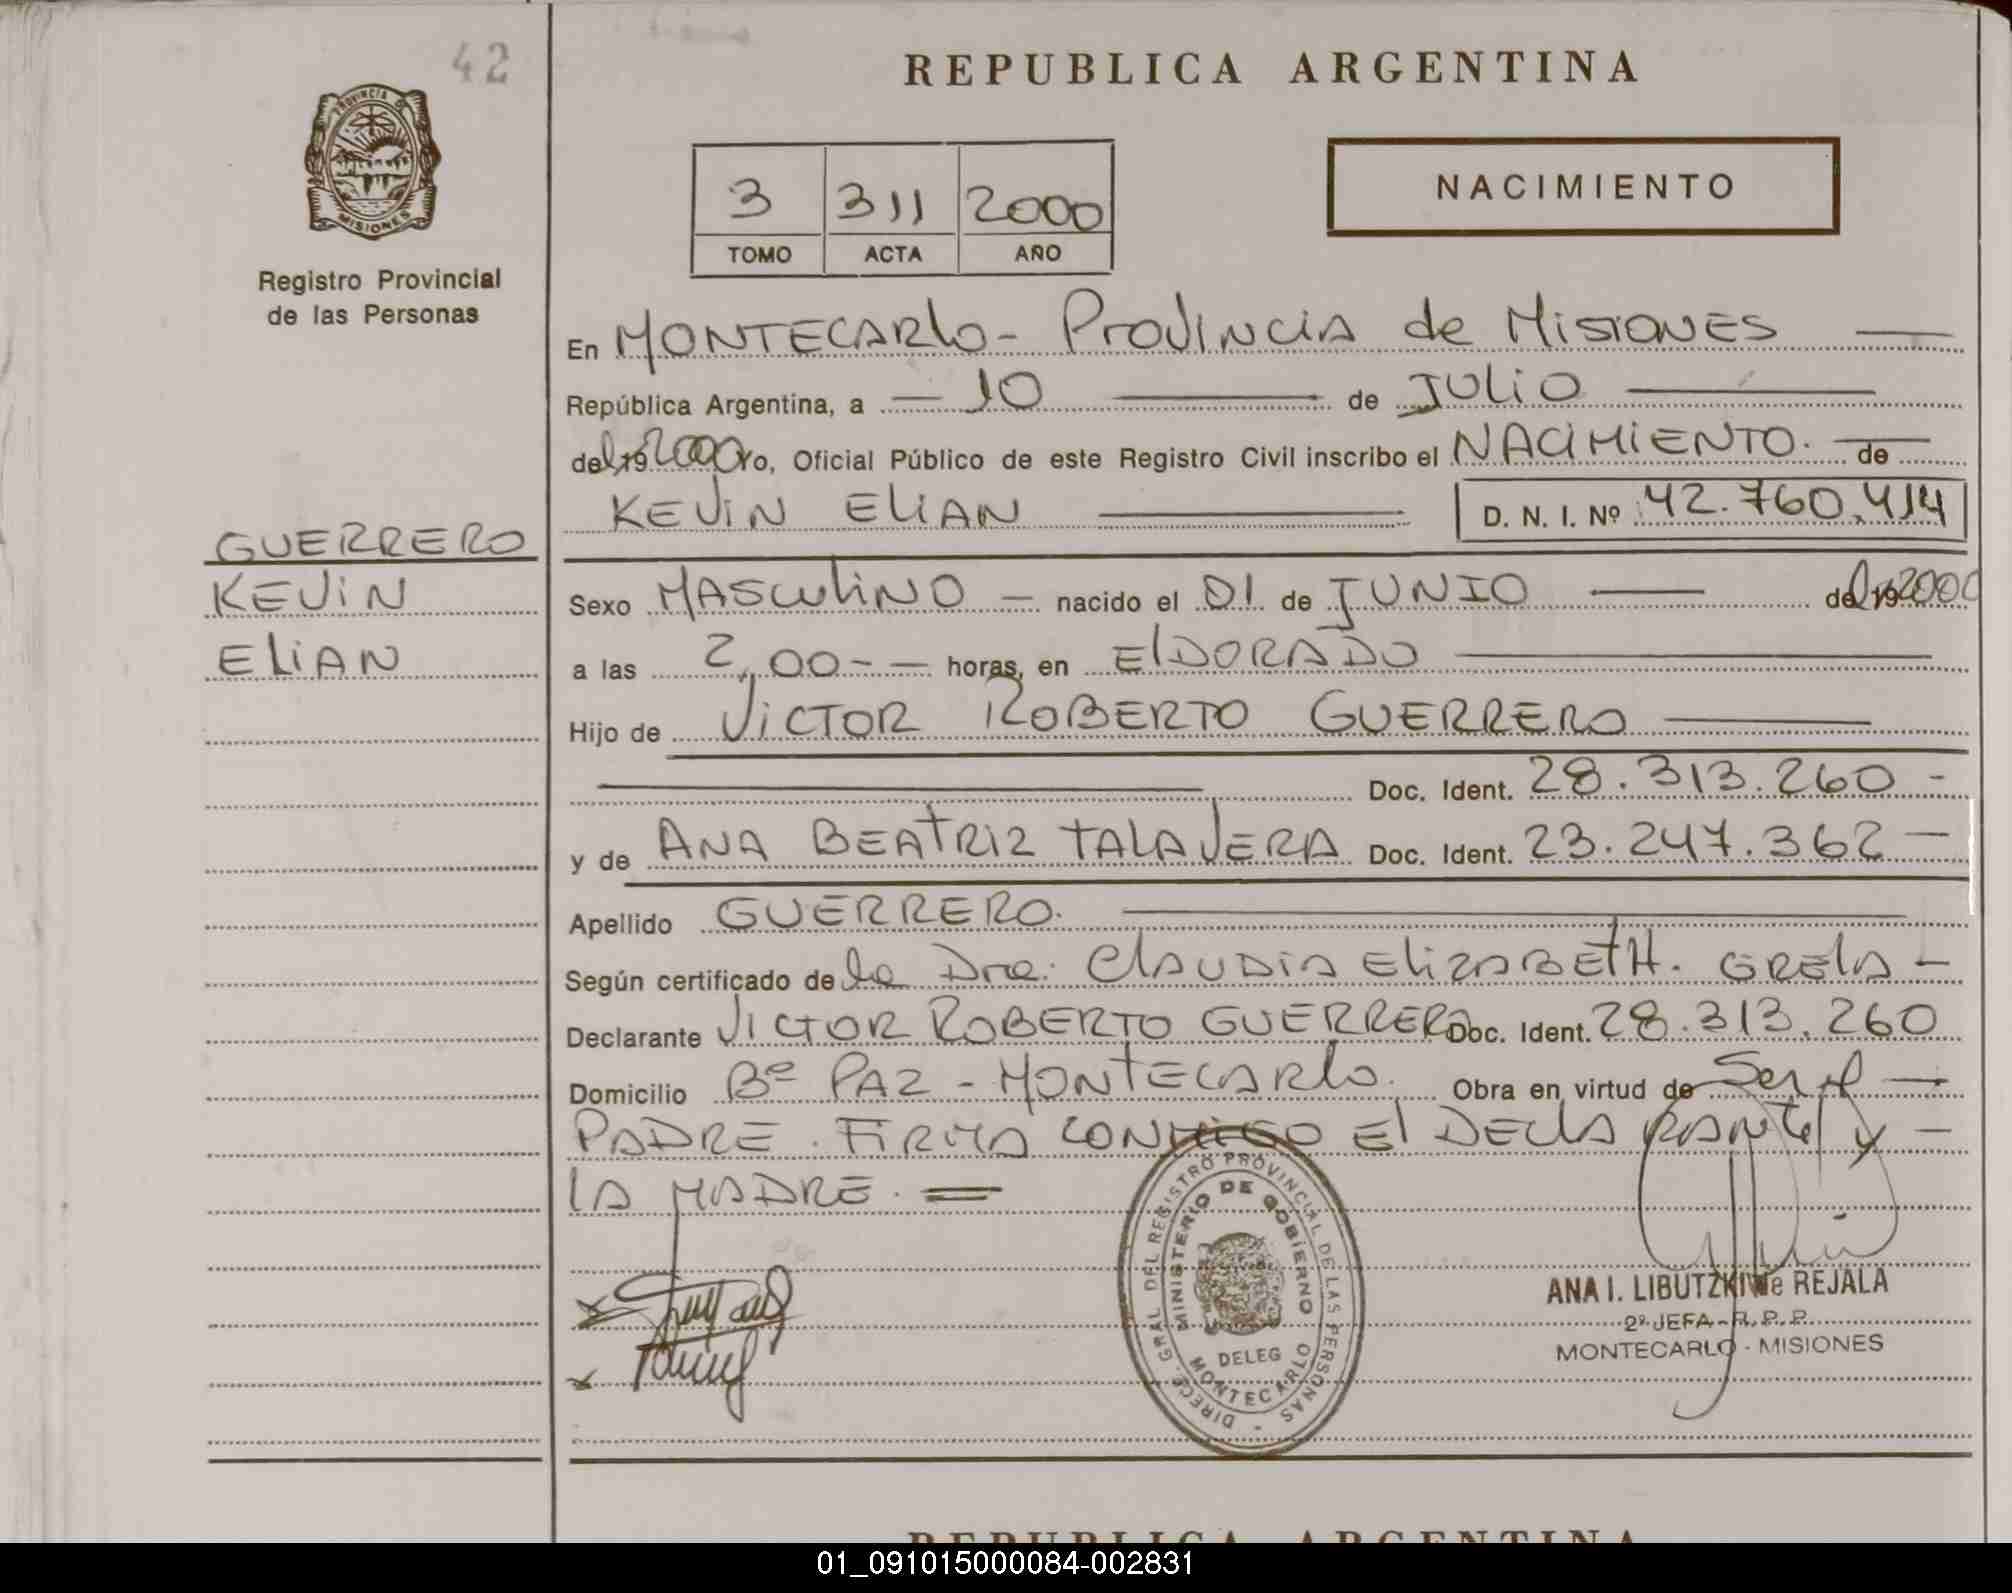 42
REPUBLICA ARGENTINA
PROVINCIA DE MISIONES
Registro Provincial
de las Personas
3 311 2000
TOMO ACTA AÑO
NACIMIENTO
En MONTECARLO - PROVINCIA de MISIONES
República Argentina, a 10 de JULIO
del 2000 Yo, Oficial Público de este Registro Civil inscribo el NACIMIENTO. de
KEVIN ELIAN D. N. I. Nº 42.760.414
GUERRERO
KEVIN
ELIAN
Sexo MASCULINO nacido el 01 de JUNIO del 2000
a las 2,00 horas, en ELDORADO
Hijo de VICTOR ROBERTO GUERRERO
Doc. Ident. 28.313.260 -
y de ANA BEATRIZ TALAVERA Doc. Ident. 23.247.362 -
Apellido GUERRERO.
Según certificado de la Dra. CLAUDIA ELIZABETH. GRELA -
Declarante VICTOR ROBERTO GUERRERO Doc. Ident. 28.313.260
Domicilio Bº PAZ - MONTECARLO. Obra en virtud de Ser el
PADRE. FIRMA CONMIGO EL DECLARANTE y -
LA MADRE. =
DIREC. GRAL. DEL REGISTRO PROVINCIAL DE LAS PERSONAS
MINISTERIO DE GOBIERNO
DELEG
MONTECARLO
ANA I. LIBUTZKI de REJALA
2ª JEFA - R. P. P.
MONTECARLO - MISIONES
REPUBLICA ARGENTINA
01_091015000084-002831